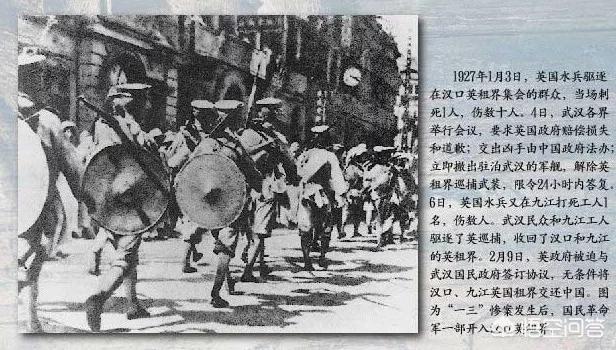 1927年1月3日，英国水兵驱逐
在汉口英租界集会的群众，当场刺
死1人，伤数十人。4日，武汉各界
举行会议，要求英国政府赔偿损失
和道歉；交出凶手由中国政府法办；
立即撤出驻泊武汉的军舰，解除英
租界巡捕武装，限令24小时内答复
6日，英国水兵又在九江打死工人1
名，伤数人。武汉民众和九江工人
驱逐了英巡捕，收回了汉口和九江
的英租界。2月9日，英政府被迫与
武汉国民政府签订协议，无条件将
汉口、九江英国租界交还中国。图
为“一三”惨案发生后，国民革命
军一部开入汉口英租界
悟空问答